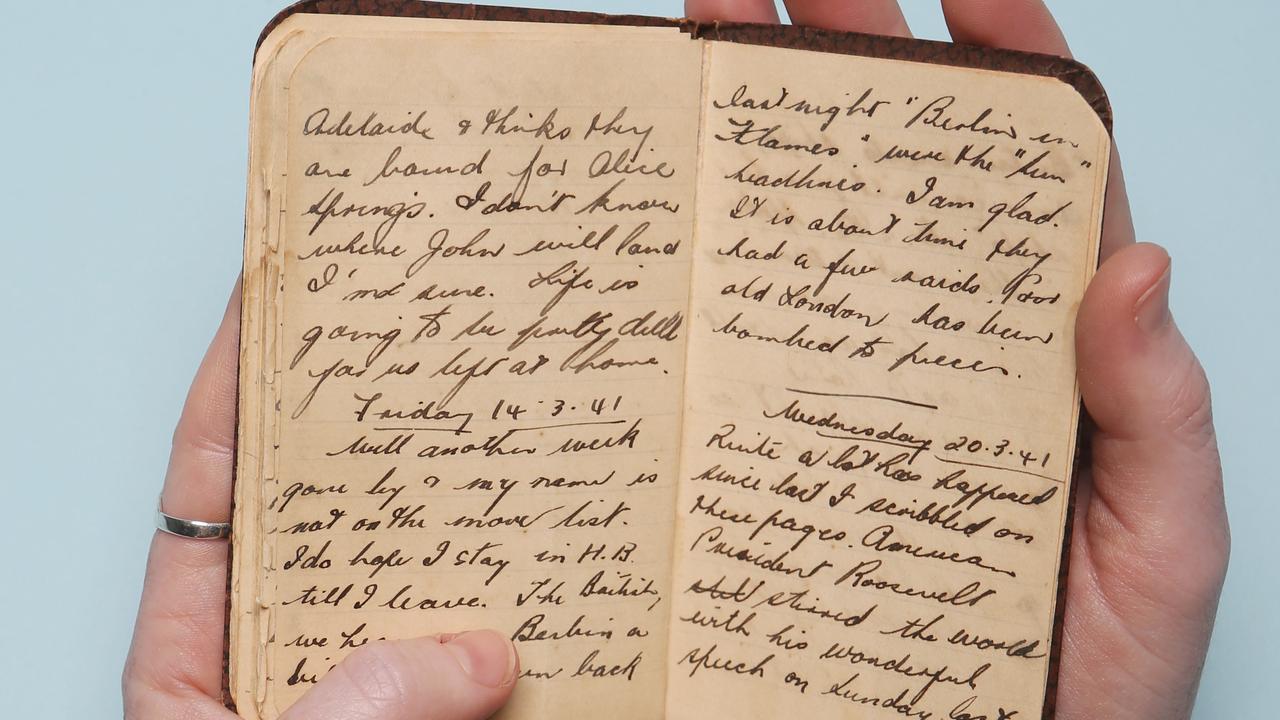 Adelaide & thinks they
are bound for Alice
Springs. I don't know
where John will land
I'm sure. Life is
going to be pretty dull
for us left at home.
Friday 14.3.41
Well another week
gone by & my name is
not on the move list.
I do hope I stay in H.B.
till I leave. The British,
we Berlin a
back
last night "Berlin in
Flames". were the "Sun"
headlines. I am glad.
It is about time they
had a few raids. Poor
old London has been
bombed to pieces.
Wednesday 20.3.41
Quite a lot has happened
since last I scribbled on
these pages. American
President Roosevelt
stirred the world
with his wonderful
speech on Sunday last